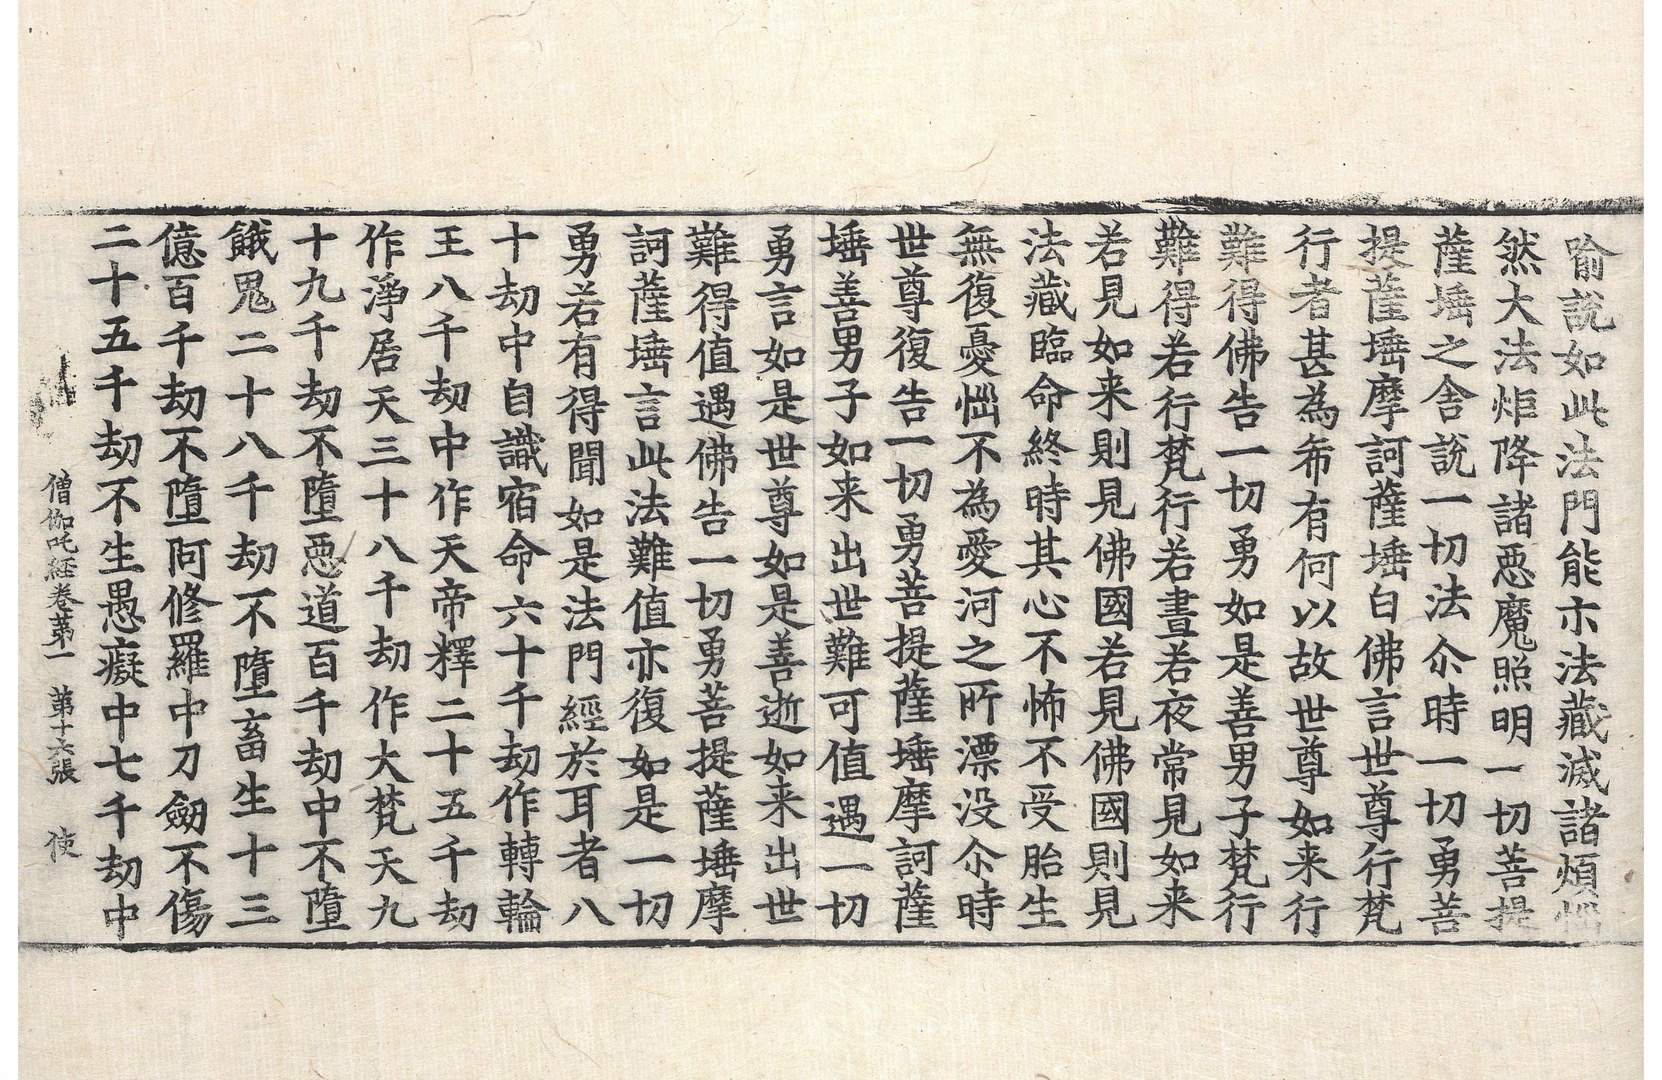 喻說如此法門能示法藏滅諸煩惱
然大法炬降諸悪魔照明一切菩提
薩埵之舍說一切法尒時一切勇菩
提薩埵摩訶薩埵白佛言世尊行梵
行者甚為希有何以故世尊如来行
難得佛告一切勇如是善男子梵行
難得若行梵行若晝若夜常見如来
若見如来則見佛國若見佛國則見
法藏臨命終時其心不怖不受胎生
無復憂惱不為愛河之所漂没尒時
世尊復告一切勇菩提薩埵摩訶薩
埵善男子如来出世難可值遇一切
勇言如是世尊如是善逝如来出世
難得值遇佛告一切勇菩提薩埵摩
訶薩埵言此法難值亦復如是一切
勇若有得聞如是法門經於耳者八
十劫中自識宿命六十千劫作轉輪
王八千劫中作天帝釋二十五千劫
作淨居天三十八千劫作大梵天九
十九千劫不墮悪道百千劫中不墮
餓鬼二十八千劫不墮畜生十三
億百千劫不墮阿修羅中刀劒不傷
二十五千劫不生愚癡中七千劫中
僧伽吒経卷苐一 苐十六張 使